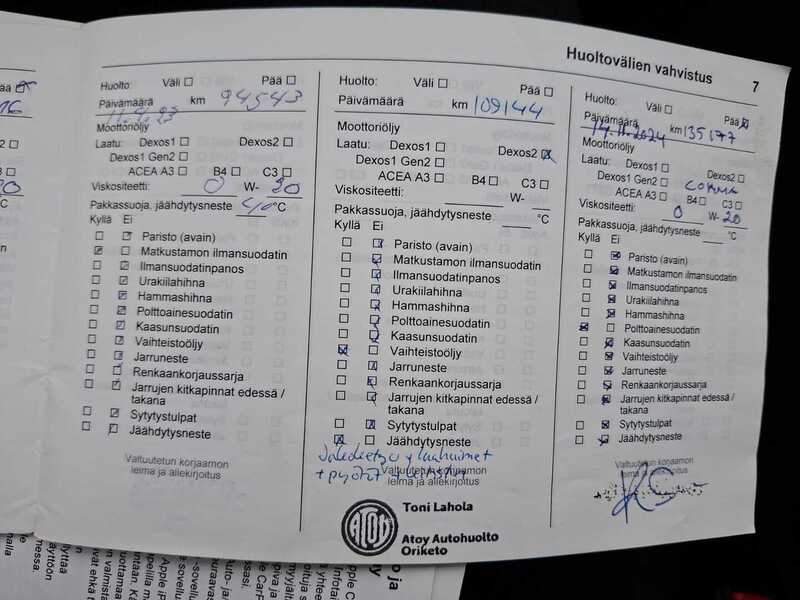 Huoltovälien vahvistus 7
Huolto: Väli ☐ Pää ☐
Päivämäärä 11.4.23 km 94543
Moottoriöljy
Laatu: Dexos1 ☐ Dexos2 ☐
Dexos1 Gen2 ☐
ACEA A3 ☐ B4 ☐ C3 ☐
Viskositeetti: 0 W- 20
Pakkassuoja, jäähdytysneste -40 °C
Kyllä Ei
☐ ☑ Paristo (avain)
☑ ☐ Matkustamon ilmansuodatin
☐ ☑ Ilmansuodatinpanos
☐ ☑ Urakiilahihna
☐ ☑ Hammashihna
☐ ☑ Polttoainesuodatin
☐ ☑ Kaasunsuodatin
☐ ☑ Vaihteistoöljy
☐ ☑ Jarruneste
☐ ☑ Renkaankorjaussarja
☐ ☑ Jarrujen kitkapinnat edessä /
takana
☐ ☑ Sytytystulpat
☐ ☑ Jäähdytysneste
Valtuutetun korjaamon
leima ja allekirjoitus
Huolto: Väli ☐ Pää ☐
Päivämäärä km 109144
Moottoriöljy
Laatu: Dexos1 ☐ Dexos2 ☒
Dexos1 Gen2 ☐
ACEA A3 ☐ B4 ☐ C3 ☐
Viskositeetti: W-
Pakkassuoja, jäähdytysneste °C
Kyllä Ei
☐ ☑ Paristo (avain)
☐ ☑ Matkustamon ilmansuodatin
☐ ☑ Ilmansuodatinpanos
☐ ☑ Urakiilahihna
☐ ☑ Hammashihna
☐ ☑ Polttoainesuodatin
☐ ☑ Kaasunsuodatin
☒ ☐ Vaihteistoöljy
☐ ☑ Jarruneste
☐ ☑ Renkaankorjaussarja
☐ ☑ Jarrujen kitkapinnat edessä /
takana
☐ ☑ Sytytystulpat
☒ ☐ Jäähdytysneste
+ pyörät
Valtuutetun korjaamon
leima ja allekirjoitus
ATOY
Toni Lahola
Atoy Autohuolto
Oriketo
Huolto: Väli ☐ Pää ☒
Päivämäärä 14.11.2024 km 135177
Moottoriöljy
Laatu: Dexos1 ☐ Dexos2 ☐
Dexos1 Gen2 ☐ COMMA
ACEA A3 ☐ B4 ☐ C3 ☐
Viskositeetti: 0 W- 20
Pakkassuoja, jäähdytysneste °C
Kyllä Ei
☐ ☒ Paristo (avain)
☐ ☒ Matkustamon ilmansuodatin
☐ ☒ Ilmansuodatinpanos
☐ ☒ Urakiilahihna
☐ ☒ Hammashihna
☒ ☐ Polttoainesuodatin
☐ ☒ Kaasunsuodatin
☐ ☒ Vaihteistoöljy
☐ ☒ Jarruneste
☐ ☒ Renkaankorjaussarja
☐ ☒ Jarrujen kitkapinnat edessä /
takana
☐ ☒ Sytytystulpat
☐ ☒ Jäähdytysneste
Valtuutetun korjaamon
leima ja allekirjoitus